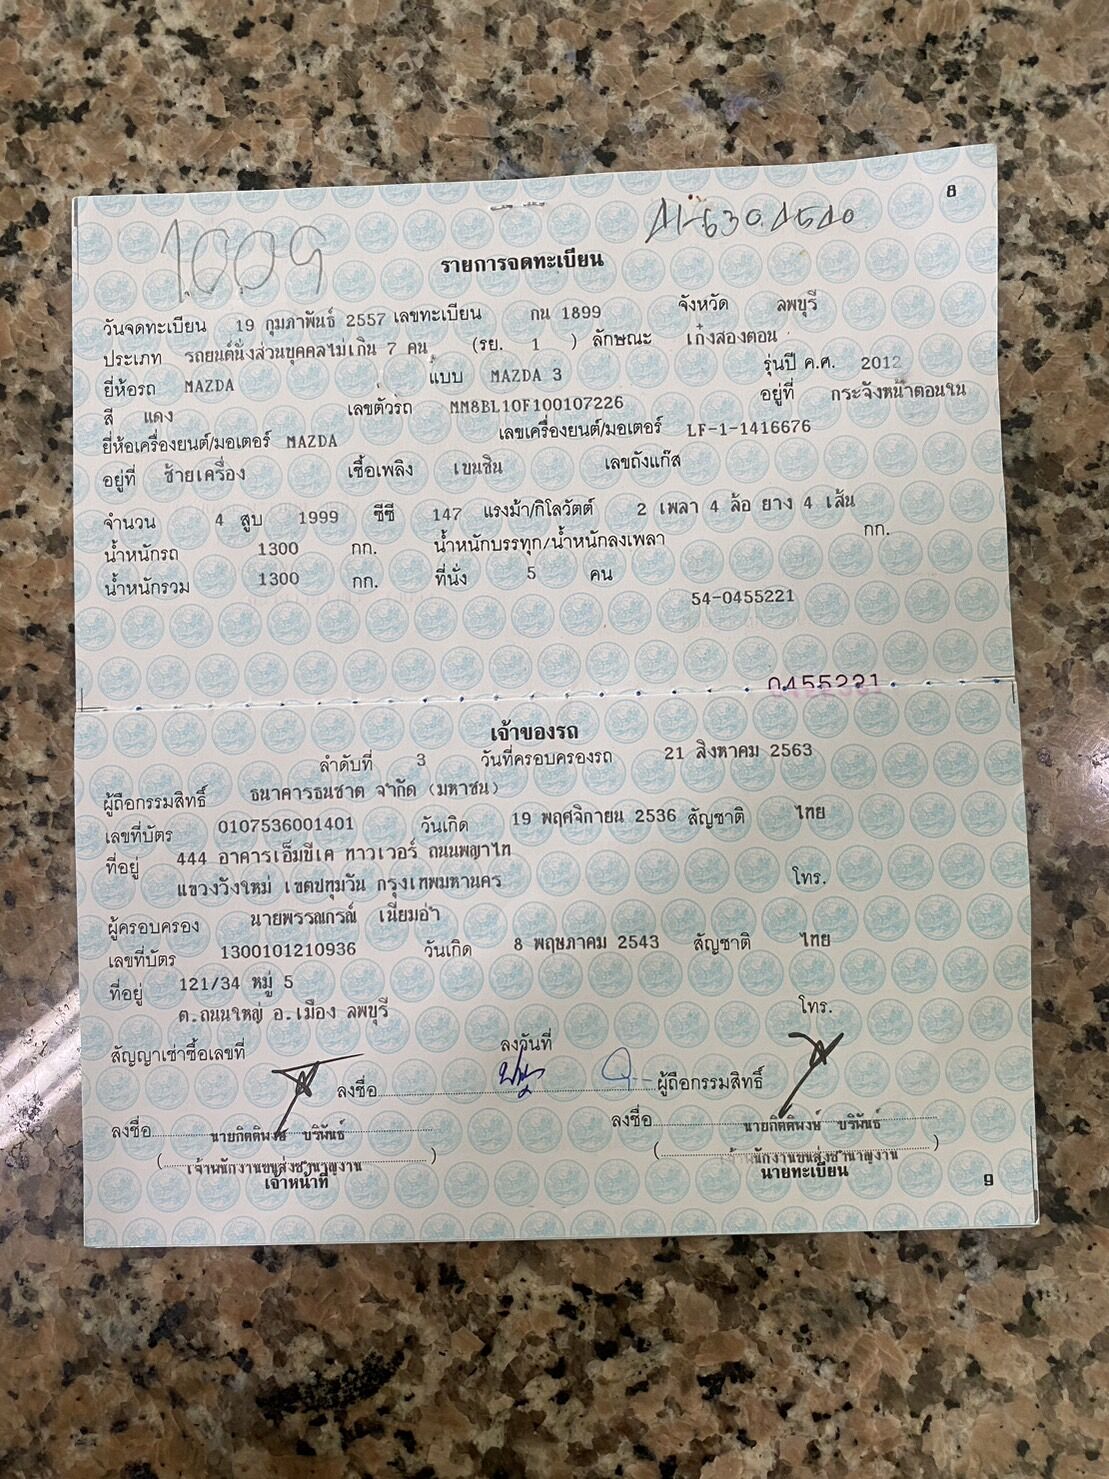 8
1009
รายการจดทะเบียน
วันจดทะเบียน 19 กุมภาพันธ์ 2557 เลขทะเบียน กน 1899 จังหวัด ลพบุรี
ประเภท รถยนต์นั่งส่วนบุคคลไม่เกิน 7 คน (รย. 1 ) ลักษณะ เก๋งสองตอน
ยี่ห้อรถ MAZDA แบบ MAZDA 3 รุ่นปี ค.ศ. 2012
สี แดง เลขตัวรถ MM8BL10F100107226 อยู่ที่ กระจังหน้าตอนใน
ยี่ห้อเครื่องยนต์/มอเตอร์ MAZDA เลขเครื่องยนต์/มอเตอร์ LF-1-1416676
อยู่ที่ ซ้ายเครื่อง เชื้อเพลิง เบนซิน เลขถังแก๊ส
จำนวน 4 สูบ 1999 ซีซี 147 แรงม้า/กิโลวัตต์ 2 เพลา 4 ล้อ ยาง 4 เส้น
น้ำหนักรถ 1300 กก. น้ำหนักบรรทุก/น้ำหนักลงเพลา กก.
น้ำหนักรวม 1300 กก. ที่นั่ง 5 คน
54-0455221
0455221
เจ้าของรถ
ลำดับที่ 3 วันที่ครอบครองรถ 21 สิงหาคม 2563
ผู้ถือกรรมสิทธิ์ ธนาคารธนชาต จำกัด (มหาชน)
เลขที่บัตร 0107536001401 วันเกิด 19 พฤศจิกายน 2536 สัญชาติ ไทย
ที่อยู่ 444 อาคารเอ็มบีเค ทาวเวอร์ ถนนพญาไท
แขวงวังใหม่ เขตปทุมวัน กรุงเทพมหานคร โทร.
ผู้ครอบครอง นายพรรณกรณ์ เนียมอ่ำ
เลขที่บัตร 1300101210936 วันเกิด 8 พฤษภาคม 2543 สัญชาติ ไทย
ที่อยู่ 121/34 หมู่ 5
ต.ถนนใหญ่ อ.เมือง ลพบุรี โทร.
สัญญาเช่าซื้อเลขที่ ลงวันที่
ลงชื่อ ผู้ถือกรรมสิทธิ์
ลงชื่อ นายกิตติพงษ์ บริพันธ์ ลงชื่อ นายกิตติพงษ์ บริพันธ์
(เจ้าพนักงานขนส่งชำนาญงาน) (เจ้าพนักงานขนส่งชำนาญงาน)
เจ้าหน้าที่ นายทะเบียน
9